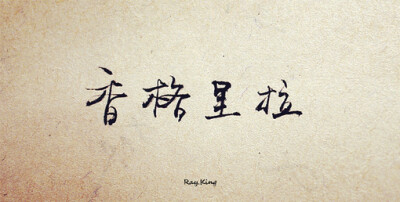 香格里拉
Ray.King